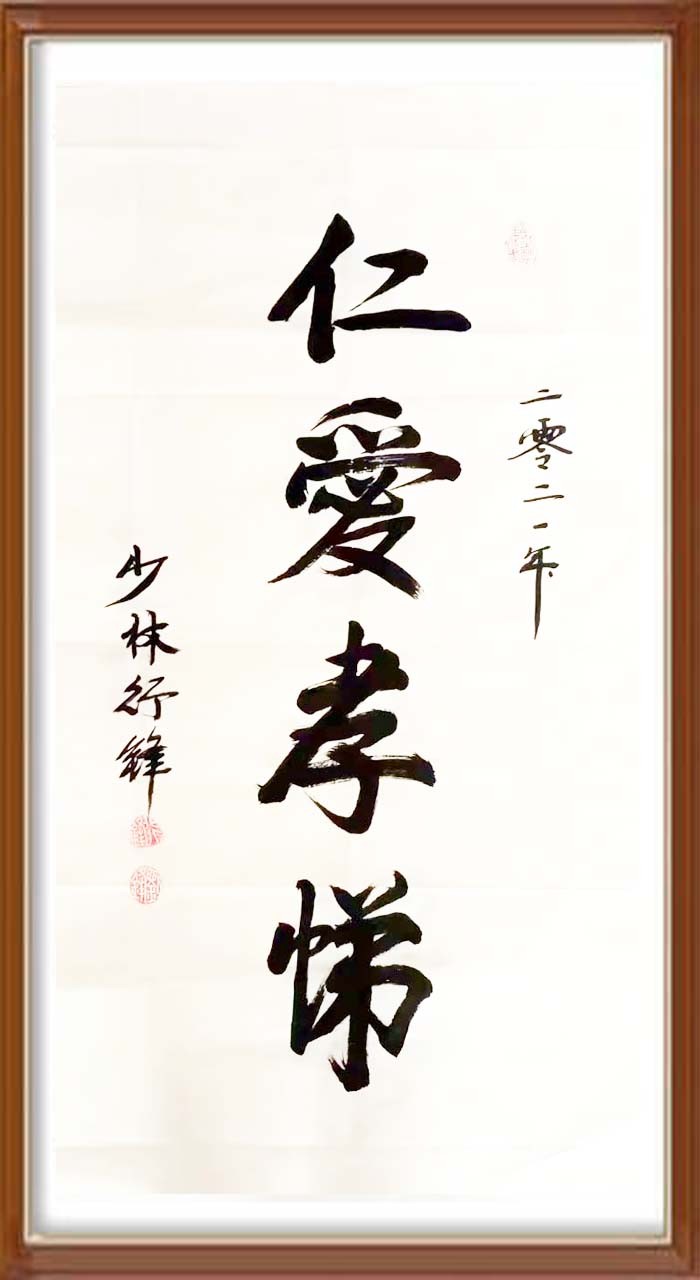 二零二一年
仁愛孝悌
少林行鋒